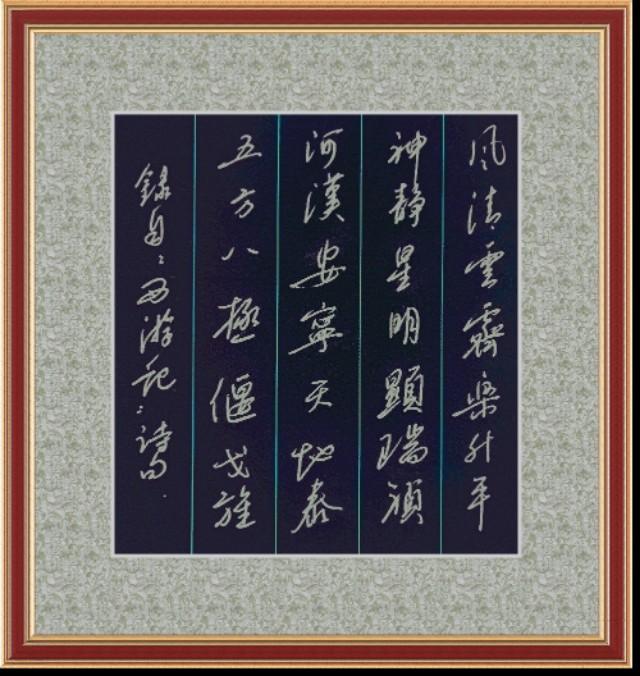 風清雲霽樂升平
神静星明顯瑞禎
河漢安寧天地泰
五方八極偃戈旌
録自〝西游記〞詩句.